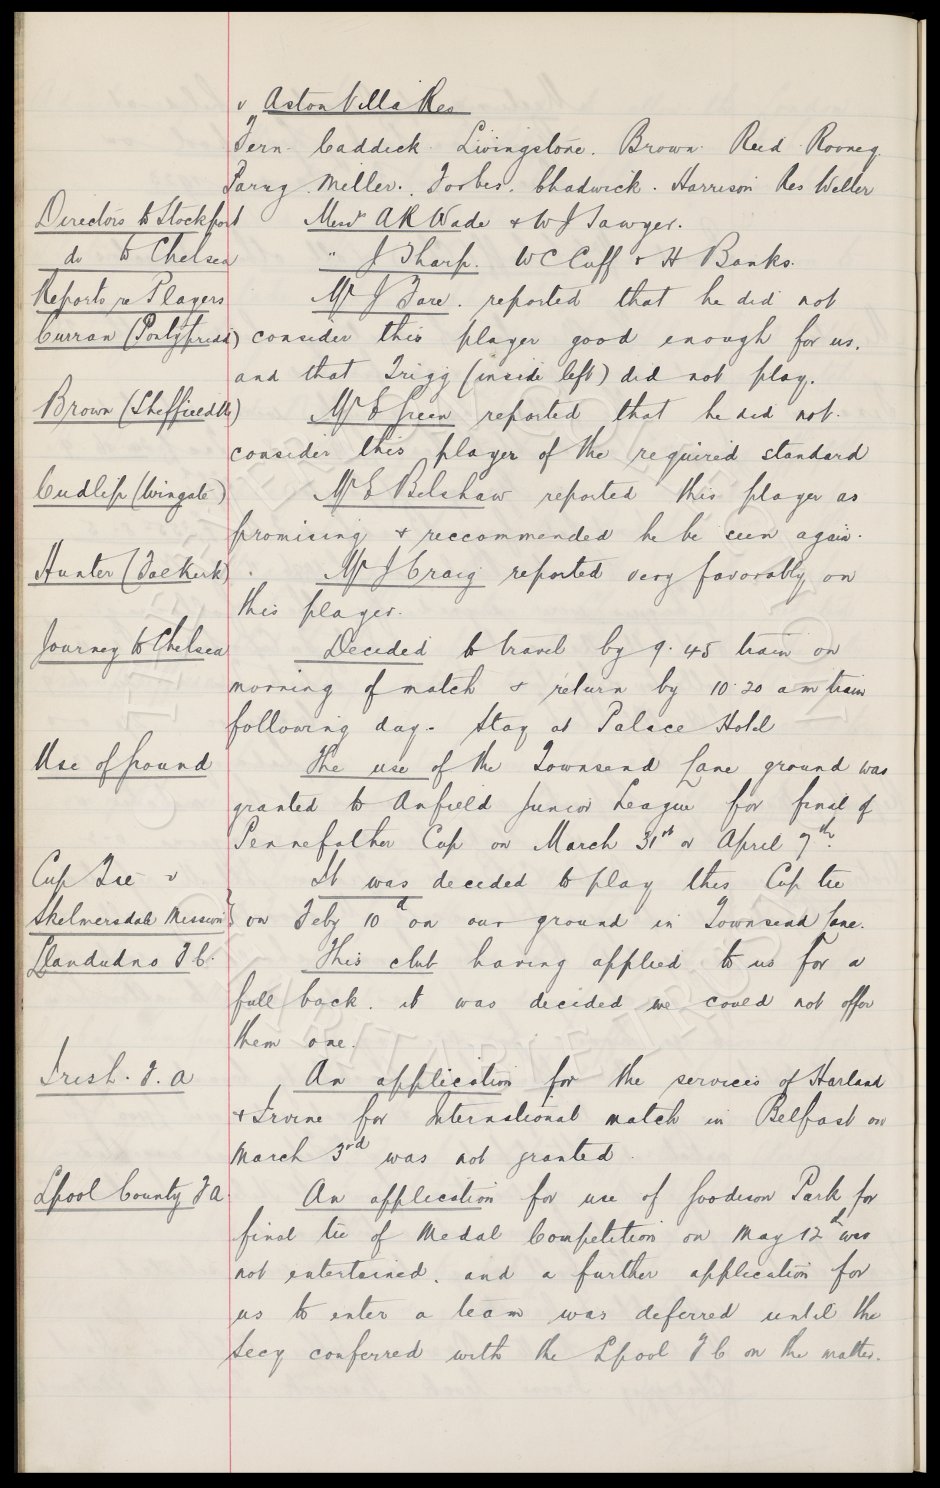 v Aston Villa Res
Fern. Caddick. Livingstone. Brown. Reid Rooney
Parry Miller. Forbes. Chadwick. Harrison Res Weller
Directors to Stockport Messrs A R Wade & W J Sawyer.
do to Chelsea " J Tharp. W C Cuff & H Banks.
Reports re Players Mr J Fare. reported that he did not
Curran (Pontypridd) consider this player good enough for us.
and that Trigg (inside left) did not play.
Brown (Sheffield W) Mr E Green reported that he did not
consider this player of the required standard
Cudlip (Wingate) Mr E Belshaw reported this player as
promising & reccommended he be seen again.
Hunter (Falkirk) Mr J Craig reported very favorably on
this player.
Journey to Chelsea Decided to travel by 9.45 train on
morning of match & return by 10.20 am train
following day. Stay at Palace Hotel
Use of Ground The use of the Townsend Lane ground was
granted to Anfield Junior League for final of
Pennefather Cup on March 31st or April 7th.
Cup Tie v It was decided to play this Cup tie
Skelmersdale Mission } on Feby 10th on our ground in Townsend Lane.
Llandudno F C. This club having applied to us for a
full back. it was decided we could not offer
them one.
Irish. F. A An application for the services of Harland
& Irvine for International match in Belfast on
March 3rd was not granted.
Lpool County F A. An application for use of Goodison Park for
final tie of Medal Competition on May 12th was
not entertained. and a further application for
us to enter a team was deferred until the
Secy conferred with the Lpool F C on the matter.